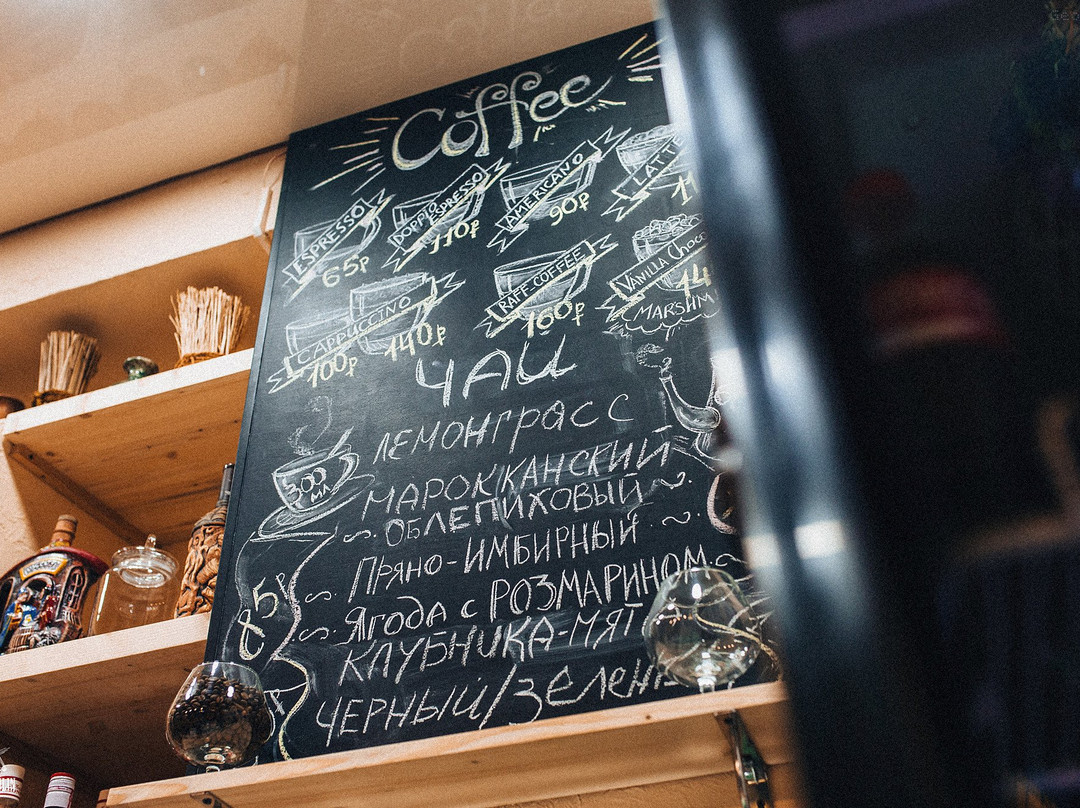 Coffee
ESPRESSO
65₽
DOPPIO ESPRESSO
110₽
AMERICANO
90₽
LATTE
CAPPUCCINO
100₽ 140₽
RAFF-COFFEE
160₽
VANILLA
ЧАЙ
ЛЕМОНГРАСС
МАРОККАНСКИЙ
ОБЛЕПИХОВЫЙ
ПРЯНО-ИМБИРНЫЙ
ЯГОДА с РОЗМАРИНОМ
КЛУБНИКА-МЯТ
ЧЕРНЫЙ/ЗЕЛЕН
300 МЛ
85₽